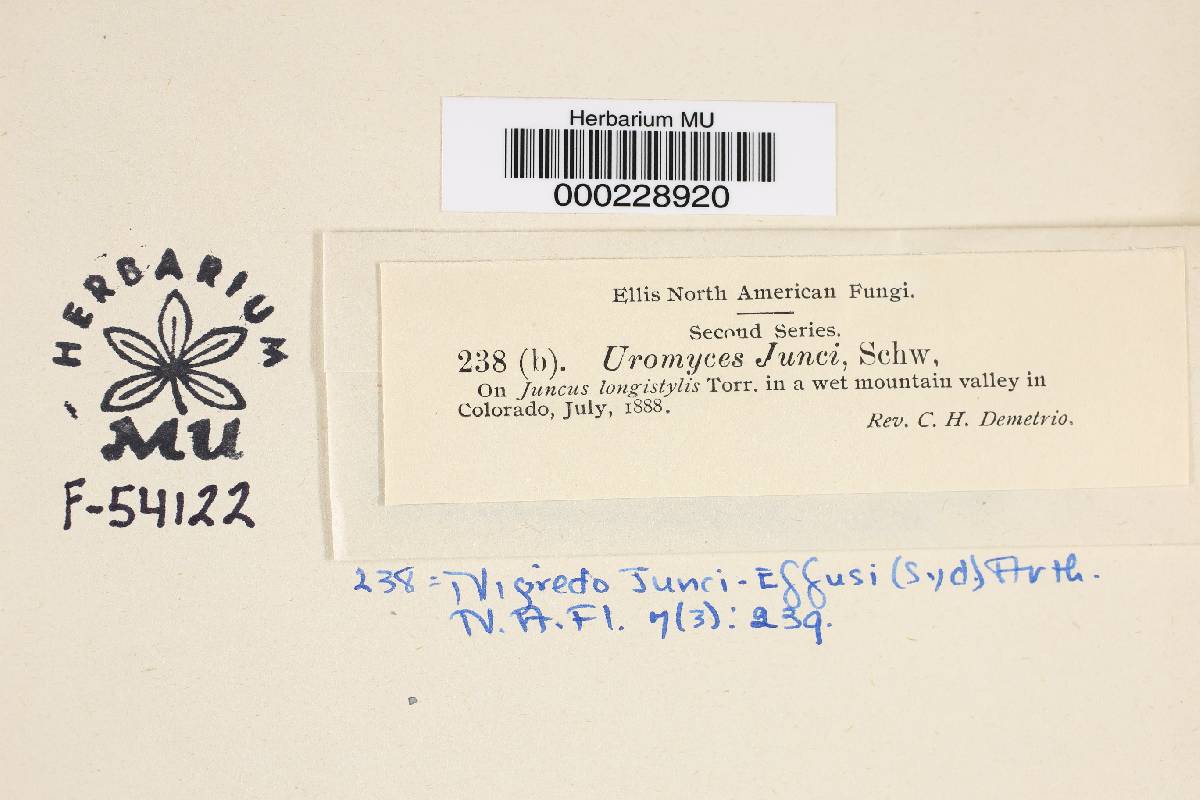 Herbarium MU
000228920
HERBARIUM
MU
F-54122
Ellis North American Fungi.
Second Series.
238 (b). Uromyces Junci, Schw,
On Juncus longistylis Torr. in a wet mountain valley in
Colorado, July, 1888.
Rev. C. H. Demetrio.
238 = Nigredo Junci-Effusi (Syd.) Arth.
N. A. Fl. 7(3): 239.